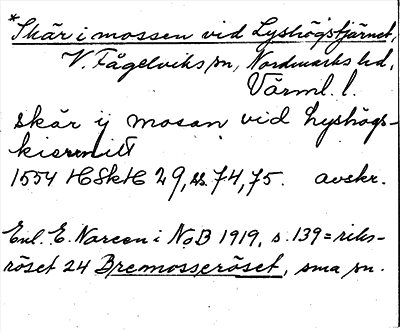 *Skär i mossen vid Lyshögstjärnet,
V. Fågelviks sn, Nordmarks hd,
Värml. l.
skär ij mosan vid Lyshögs-
kiernitt
1554 HSkH 29, ss. 74, 75. avskr.
Enl. E. Noreen i NoB 1919, s. 139 = riks-
röset 24 Bremosseröset, sma sn.